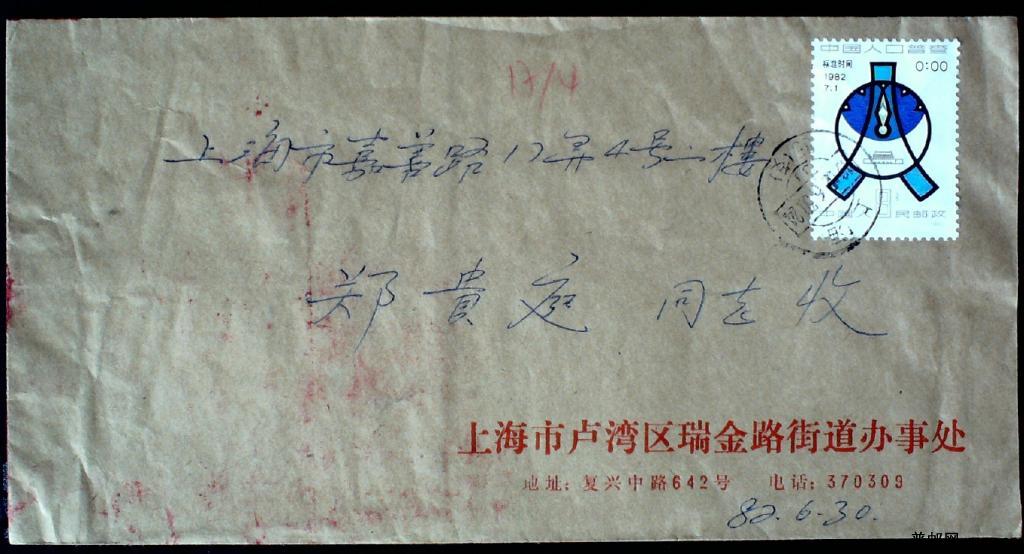 中国人口普查
标准时间
1982
7.1
0:00
17/4
上海市嘉善路17弄4号二楼
中国人民邮政
上海
郑貴庭 同志收
上海市卢湾区瑞金路街道办事处
地址:复兴中路642号 电话:370309
82.6.30.